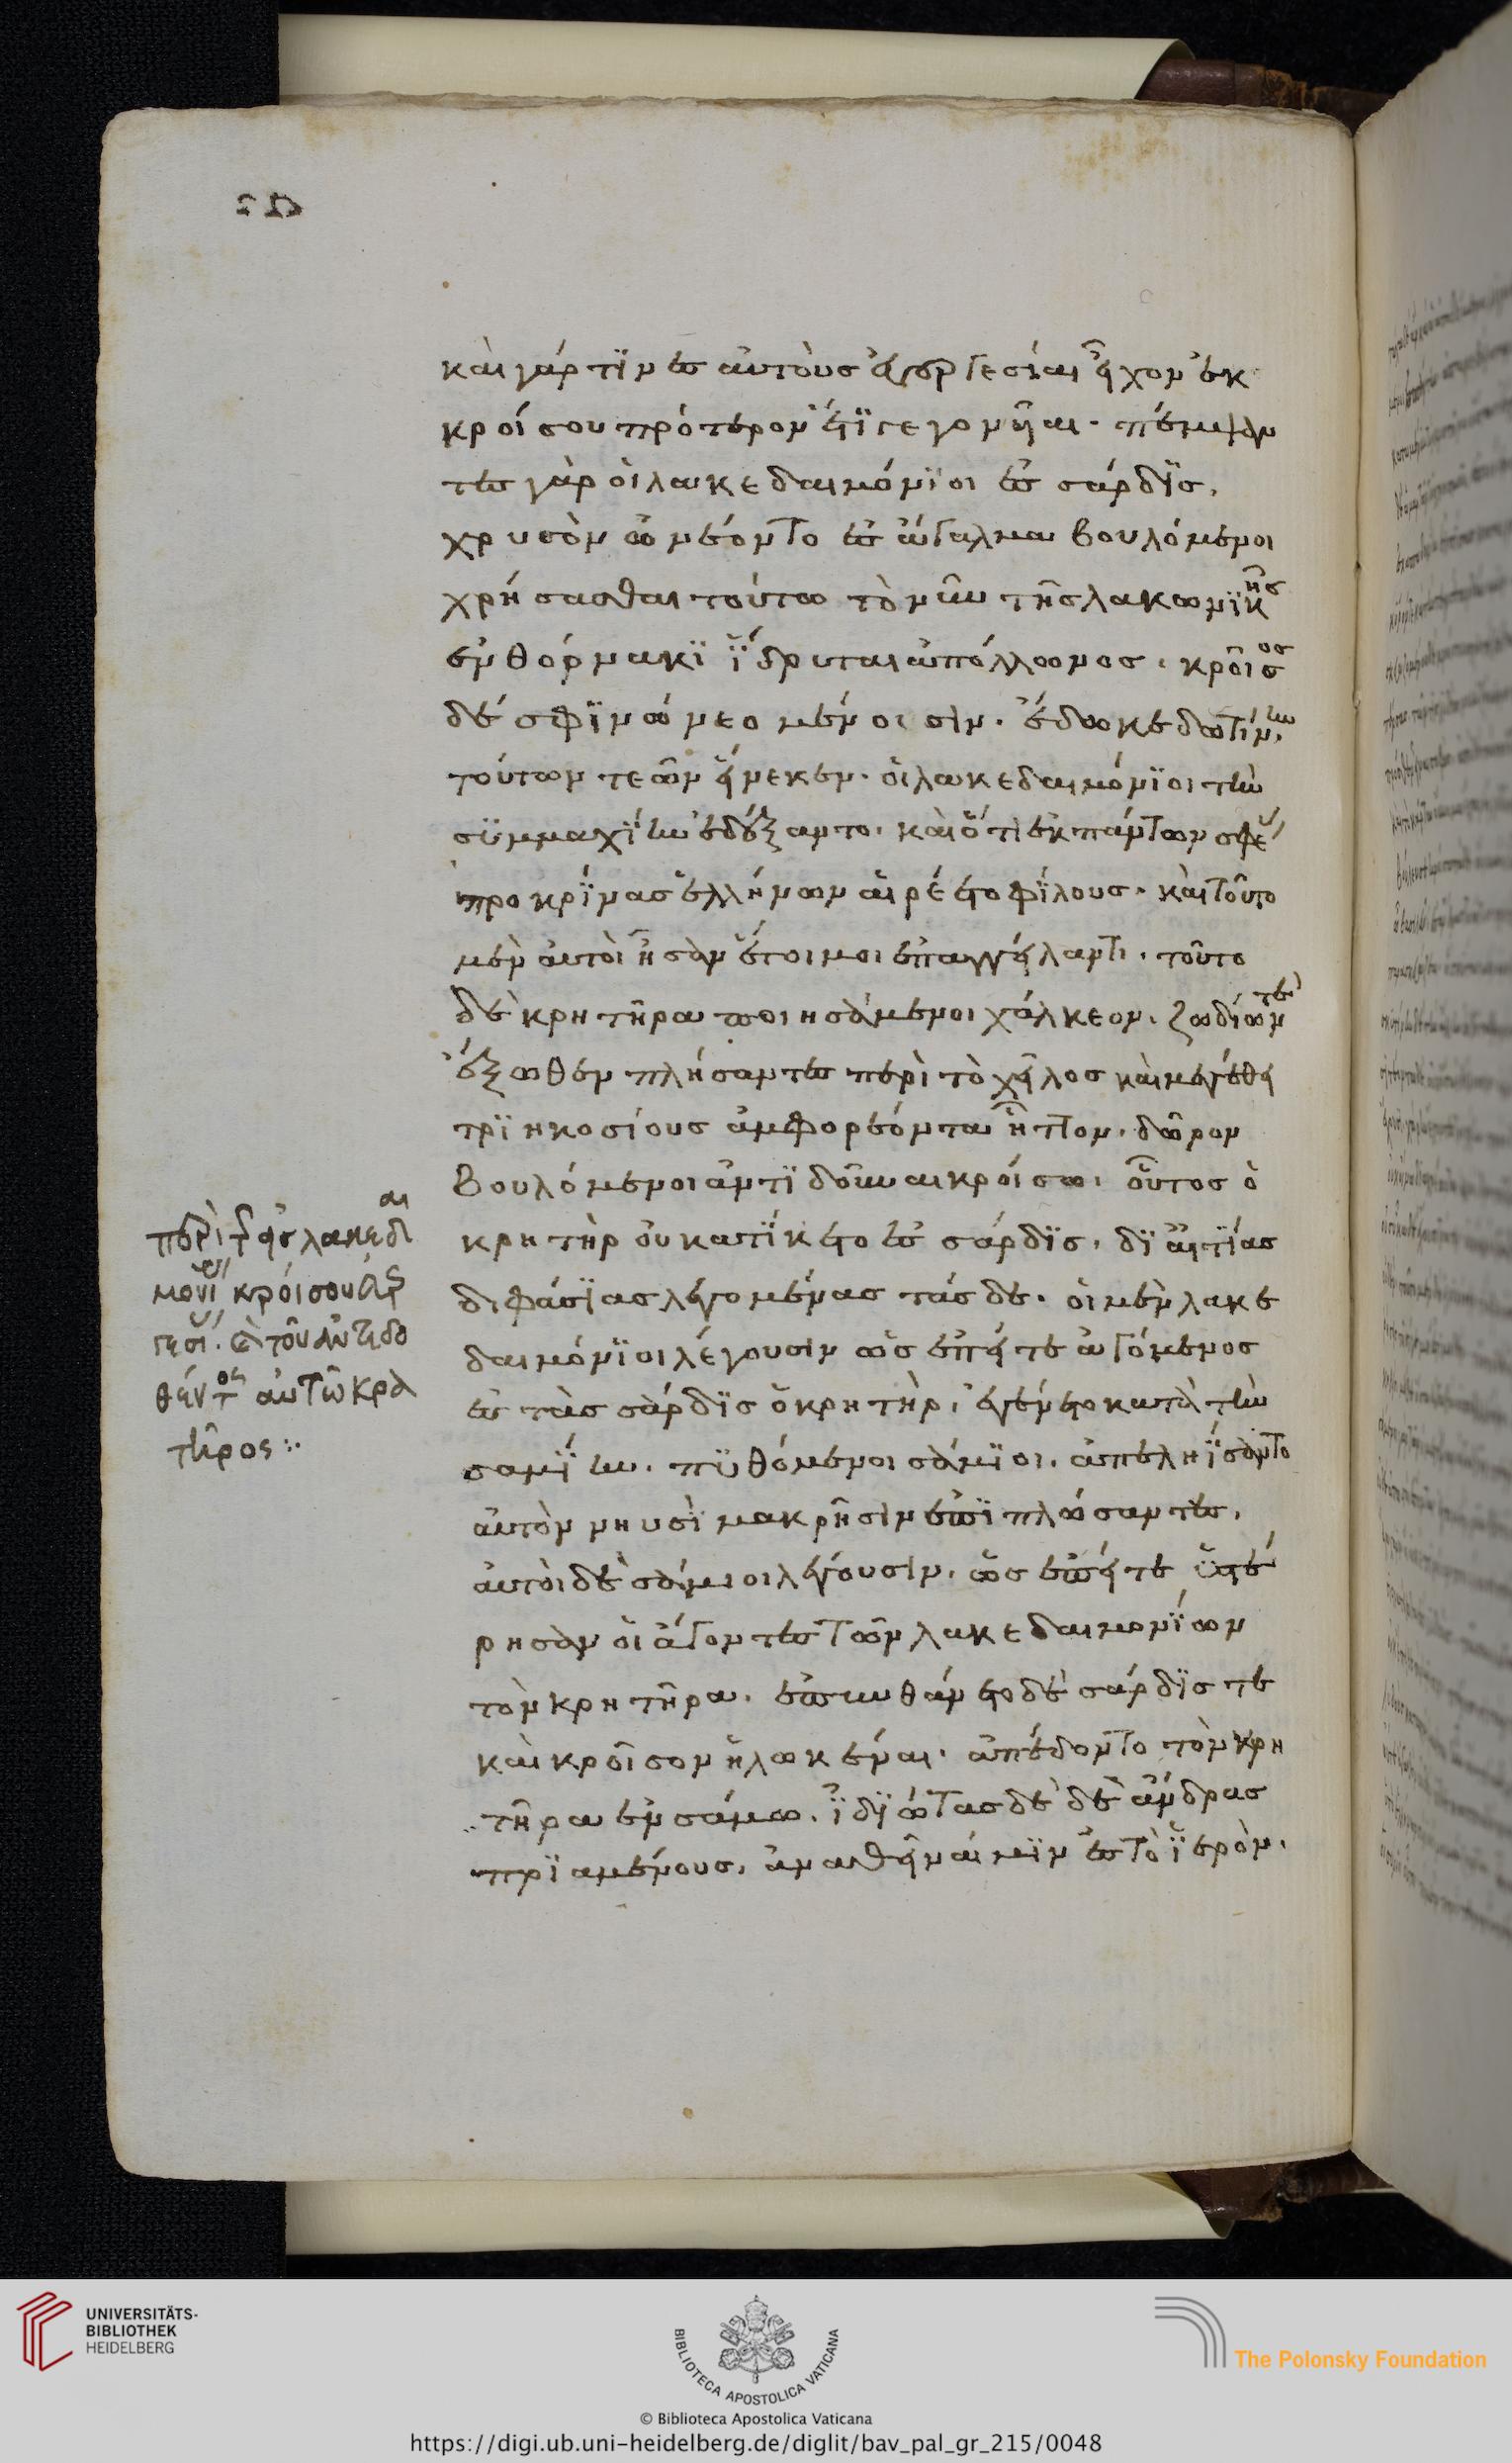 καὶ γάρ τϊν ες αὐτοὺς ἐυεργεσίαι εἶχον ἐκ
κροίσου πρότερον ἔτϊ γεγονῆαι. πέμψαν
τες γὰρ ὁι λακεδαιμόνϊοι ἐς σάρδϊς,
χρυσὸν ὠνέοντο ἐς ἄγαλμα βουλόμενοι
χρήσασθαι τούτω τὸ νῦν τῆς λακωνϊκῆς
ἐν θόρνακϊ ἵδρυται ἀπόλλωνος. κροῖσος
δέ σφϊ νώνεομένοισιν. ἔδωκε δωτίνην,
τούτων τε ὦν εἵνεκεν. ὁι λακεδαιμόνϊοι τὴν
συμμαχϊην ἐδέξαντο, καὶ ὅτι ἐκ πάντων σφέ
προκρίνας ἑλλήνων αἱρέετο φίλους. καὶ τοῦτο
μὲν αὐτοὶ ἦσαν ἕτοιμοι ἐπαγγείλαντι. τοῦτο
δὲ κρητῆρα ποιησάμενοι χάλκεον, ζωδίων τε
ἔξωθεν πλήσαντες περὶ τὸ χεῖλος καὶ μεγέθει
τρϊηκοσίους ἀμφορέοντα ἦγον, δῶρον
βουλόμενοι ἀντϊδοῦναι κροίσω. οὗτος ὁ
κρητὴρ οὐκ απΐκετο ἐς σάρδϊς, δϊ αἰτϊας
διφάσϊας λεγομένας τάσδε. ὁι μὲν λακε
δαιμόνϊοι λέγουσιν ὡς ἐπείτε ἀγόμενος
ἐς τὰς σάρδϊς ὁ κρητὴρ, ἐγένετο κατὰ τὴν
σαμΐην. πϋθόμενοι σάμϊοι, ἀπελήϊσαντο
αὐτὸν νηυσὶ μακρῆσιν ἐπϊπλώσαντες.
αὐτοὶ δὲ σάμιοι λέγουσιν, ὡς ἐπείτε ὑστέ
ρησαν ὁι ἄγοντες τῶν λακεδαιμονϊων
τὸν κρητῆρα, ἐπυνθάνετο δὲ σάρδϊς τε
καὶ κροῖσον ἡλωκέναι, ἀπέδοντο τὸν κρη
τῆρα ἐν σάμω. ἰδϊώτας δὲ δὲ ἄνδρας
πρϊαμένους, ἀναθεῖναί μϊν ἐς τὸ ϊερόν.
περὶ τῆς εἰς λακεδαι
μονίους κροίσου εὐερ
γεσίας. καὶ τοῦ ἀντιδο
θέντος αὐτῶ κρα
τῆρος :·
UNIVERSITÄTS-
BIBLIOTHEK
HEIDELBERG
BIBLIOTECA APOSTOLICA VATICANA
© Biblioteca Apostolica Vaticana
The Polonsky Foundation
https://digi.ub.uni-heidelberg.de/diglit/bav_pal_gr_215/0048